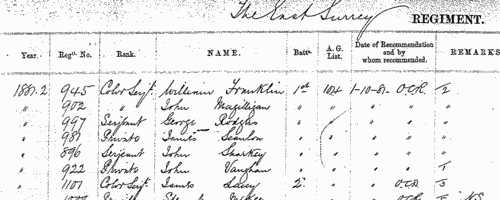 The East Surrey REGIMENT.
Year. Regtl. No. Rank. NAME. Battn. A. G. List. Date of Recommendation and by whom recommended. REMARKS
1881-2 945 Color Serjt. William Franklin 1st 104 1-10-81 O.C.R. 1/2
" 902 " John Magilligan " " " " "
" 997 Serjeant George Rodgers " " " " "
" 987 Private James Scanlon " " " "
" 896 Serjeant John Sharkey " " " " "
" 922 Private John Vaughan " " " "
" 1101 Color Serjt. James Lacey 2 " " O.C.R.